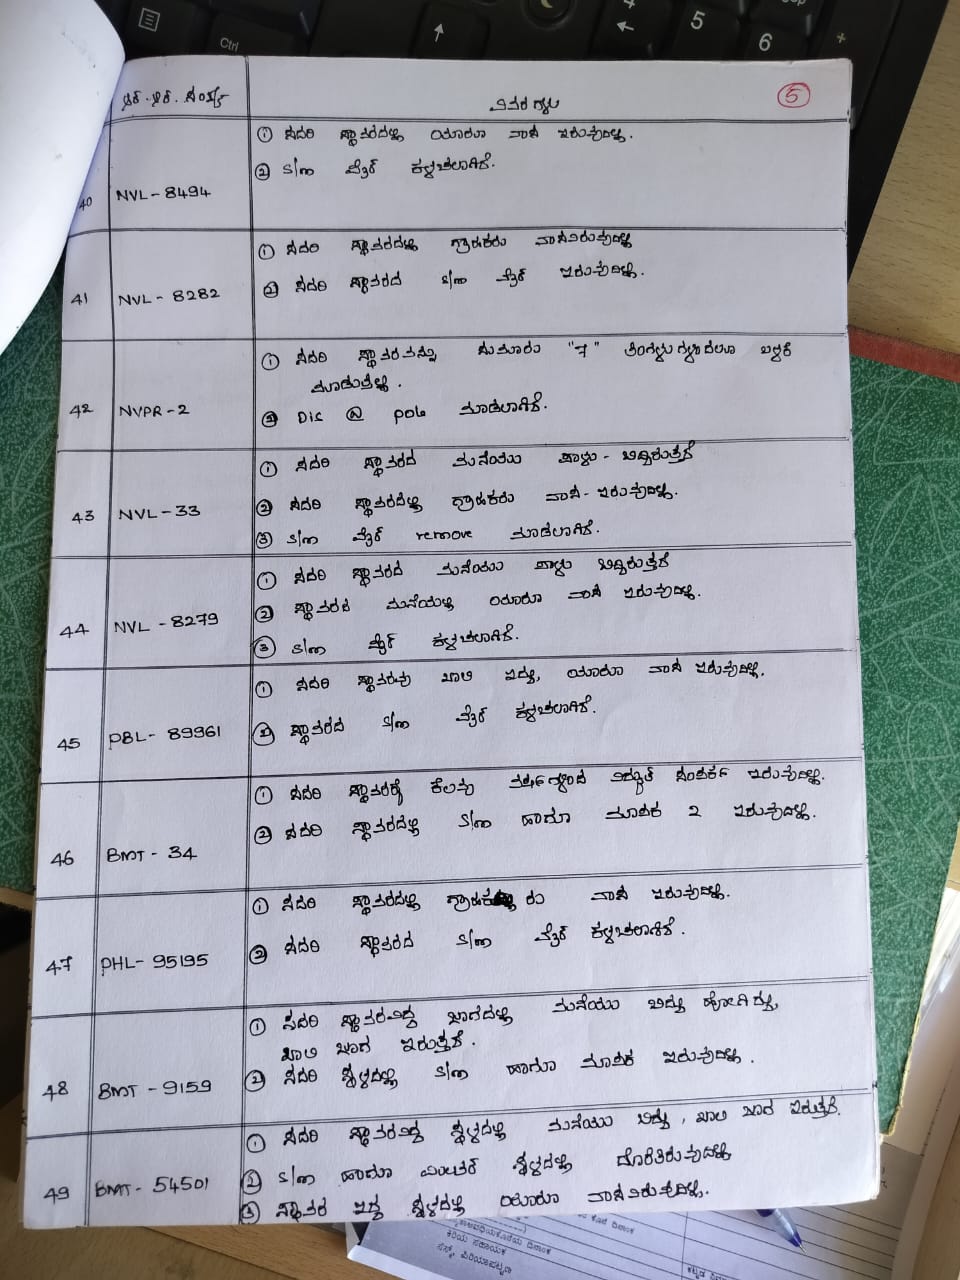 Ctrl
5
6
+
ಆರ್.ಆರ್. ಸಂಖ್ಯೆ ವಿವರಗಳು 5
40 NVL-8494 ① ಸದರಿ ಸ್ಥಾವರದಲ್ಲಿ ಯಾರೂ ವಾಸ ಇರುವುದಿಲ್ಲ.
② S/m ವೈರ್ ಕಳಚಲಾಗಿದೆ.
41 NVL-8282 ① ಸದರಿ ಸ್ಥಾವರದಲ್ಲಿ ಗ್ರಾಹಕರು ವಾಸವಿರುವುದಿಲ್ಲ
② ಸದರಿ ಸ್ಥಾವರದ S/m ವೈರ್ ಇರುವುದಿಲ್ಲ.
42 NVPR-2 ① ಸದರಿ ಸ್ಥಾವರವನ್ನು ಸುಮಾರು "7" ತಿಂಗಳುಗಳಿಂದಲೂ ಬಳಕೆ
ಮಾಡುತ್ತಿಲ್ಲ.
② Dis @ pole ಮಾಡಲಾಗಿದೆ.
43 NVL-33 ① ಸದರಿ ಸ್ಥಾವರದ ಮನೆಯು ಪಾಳು-ಬಿದ್ದಿರುತ್ತದೆ
② ಸದರಿ ಸ್ಥಾವರದಲ್ಲಿ ಗ್ರಾಹಕರು ವಾಸ-ಇರುವುದಿಲ್ಲ.
③ S/m ವೈರ್ remove ಮಾಡಲಾಗಿದೆ.
44 NVL-8279 ① ಸದರಿ ಸ್ಥಾವರದ ಮನೆಯು ಪಾಳು ಬಿದ್ದಿರುತ್ತದೆ
② ಸ್ಥಾವರದ ಮನೆಯಲ್ಲಿ ಯಾರೂ ವಾಸ ಇರುವುದಿಲ್ಲ.
③ S/m ವೈರ್ ಕಳಚಲಾಗಿದೆ.
45 PBL-89961 ① ಸದರಿ ಸ್ಥಾವರವು ಖಾಲಿ ಇದ್ದು, ಯಾರೂ ವಾಸ ಇರುವುದಿಲ್ಲ.
② ಸ್ಥಾವರದ S/m ವೈರ್ ಕಳಚಲಾಗಿದೆ.
46 BMT-34 ① ಸದರಿ ಸ್ಥಾವರಕ್ಕೆ ಕೆಲವು ವರ್ಷಗಳಿಂದ ವಿದ್ಯುತ್ ಸಂಪರ್ಕ ಇರುವುದಿಲ್ಲ.
② ಸದರಿ ಸ್ಥಾವರದಲ್ಲಿ S/m ಹಾಗೂ ಮಾಪಕ 2 ಇರುವುದಿಲ್ಲ.
47 PHL-95195 ① ಸದರಿ ಸ್ಥಾವರದಲ್ಲಿ ಗ್ರಾಹಕರು ವಾಸ ಇರುವುದಿಲ್ಲ.
② ಸದರಿ ಸ್ಥಾವರದ S/m ವೈರ್ ಕಳಚಲಾಗಿದೆ.
48 BMT-9159 ① ಸದರಿ ಸ್ಥಾವರವಿದ್ದ ಜಾಗದಲ್ಲಿ ಮನೆಯು ಬಿದ್ದು ಹೋಗಿದ್ದು,
ಖಾಲಿ ಜಾಗ ಇರುತ್ತದೆ.
② ಸದರಿ ಸ್ಥಳದಲ್ಲಿ S/m ಹಾಗೂ ಮಾಪಕ ಇರುವುದಿಲ್ಲ.
49 BMT-54501 ① ಸದರಿ ಸ್ಥಾವರವಿದ್ದ ಸ್ಥಳದಲ್ಲಿ ಮನೆಯು ಬಿದ್ದು, ಖಾಲಿ ಜಾಗ ಇರುತ್ತದೆ.
② S/m ಹಾಗೂ ಮೀಟರ್ ಸ್ಥಳದಲ್ಲಿ ದೊರೆತಿರುವುದಿಲ್ಲ
③ ಸ್ಥಾವರ ಇದ್ದ ಸ್ಥಳದಲ್ಲಿ ಯಾರೂ ವಾಸವಿರುವುದಿಲ್ಲ.
ಕಿರಿಯ ಸಹಾಯಕ